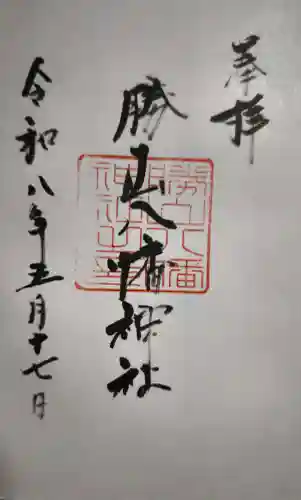 奉拝
勝正八幡神社
令和八年五月十七日